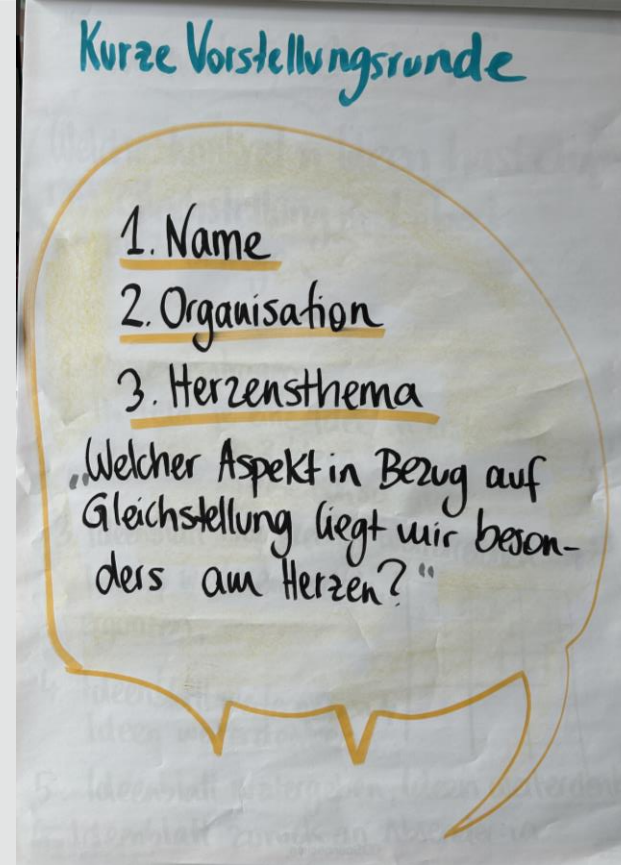 Kurze Vorstellungsrunde
1. Name
2. Organisation
3. Herzensthema
„Welcher Aspekt in Bezug auf
Gleichstellung liegt mir beson-
ders am Herzen?“